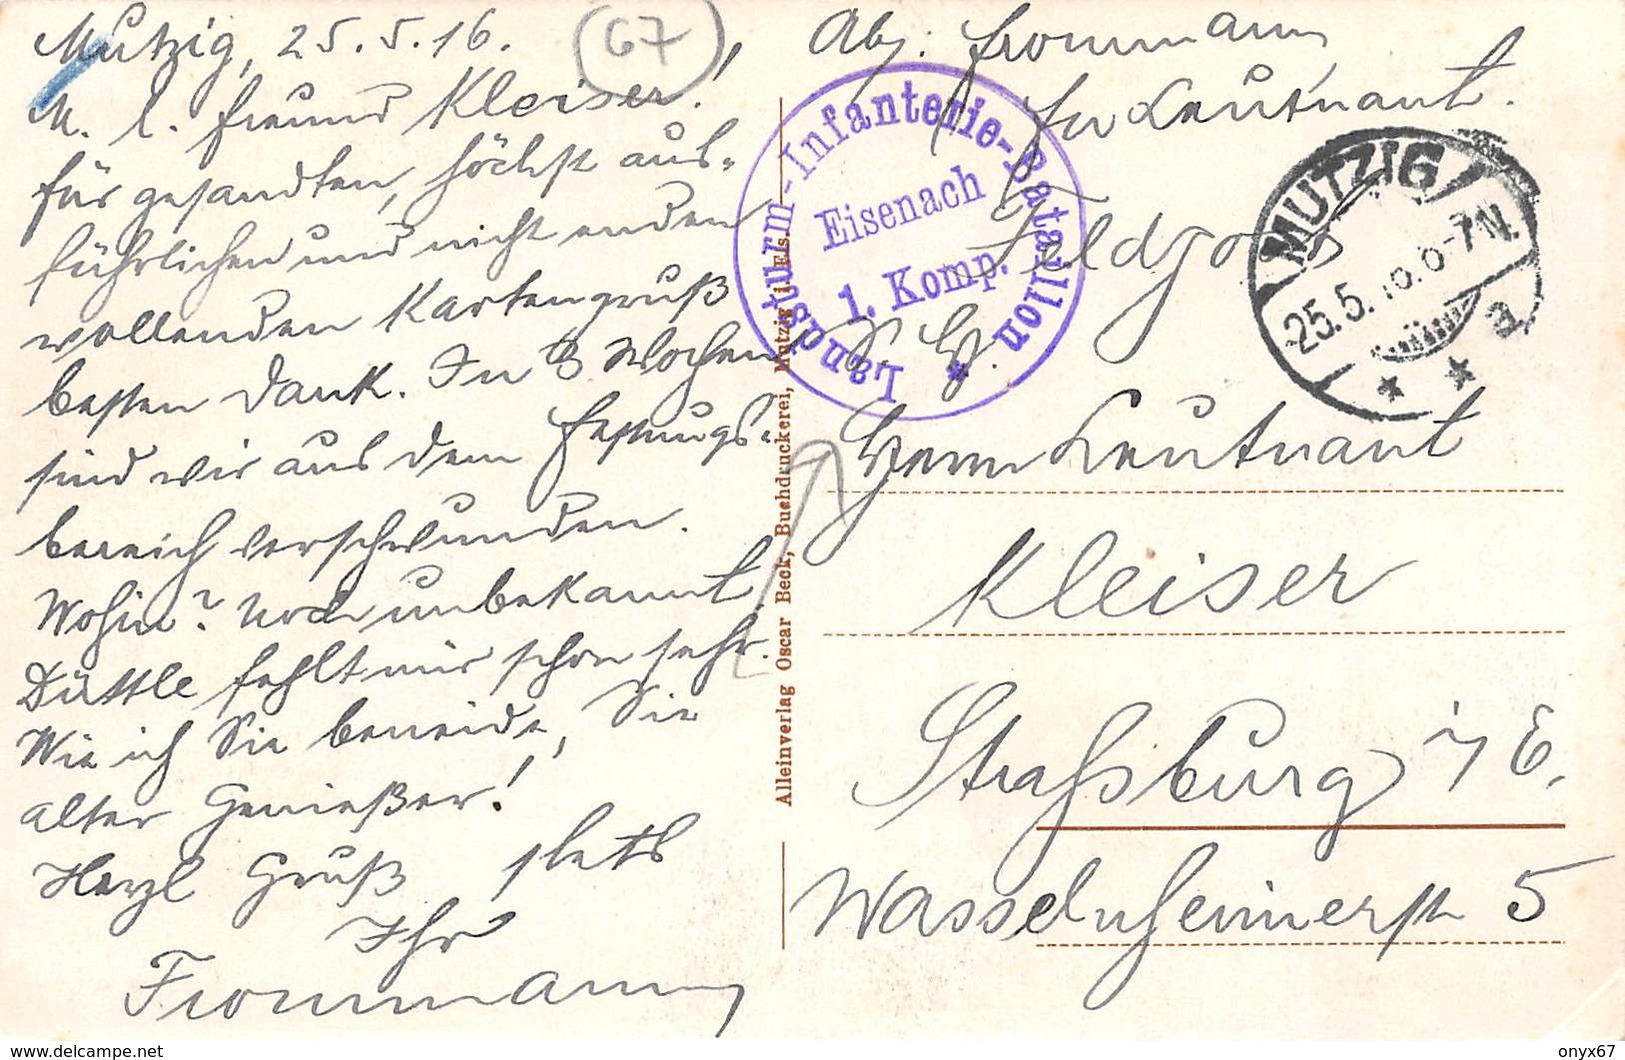 Mutzig, 25.5.16.
67
M. l. Freund Kleiser!
für gesandten, höchst aus-
führlichen und nicht enden
wollenden Kartengruß
besten Dank. In 3 Wochen
sind wir aus dem Festungs-
bereich verschwunden.
Wohin? Noch unbekannt.
Düttle fehlt mir schon sehr.
Wie ich Sie beneide, Sie
alter Genießer!
Herzl Gruß stets
Ihr
Frommann
Abs: Frommann
Leutnant.
Landsturm-Infanterie-Bataillon
Eisenach
1. Komp.
*
MUTZIG
25.5.16.6-7N.
* * a
Feldpost
S. B.
Herrn Leutnant
Kleiser
Straßburg i/E.
Wasselnheimerstr 5
Alleinverlag Oscar Beck, Buchdruckerei, Mutzig i. Els.
delcampe.net
onyx67